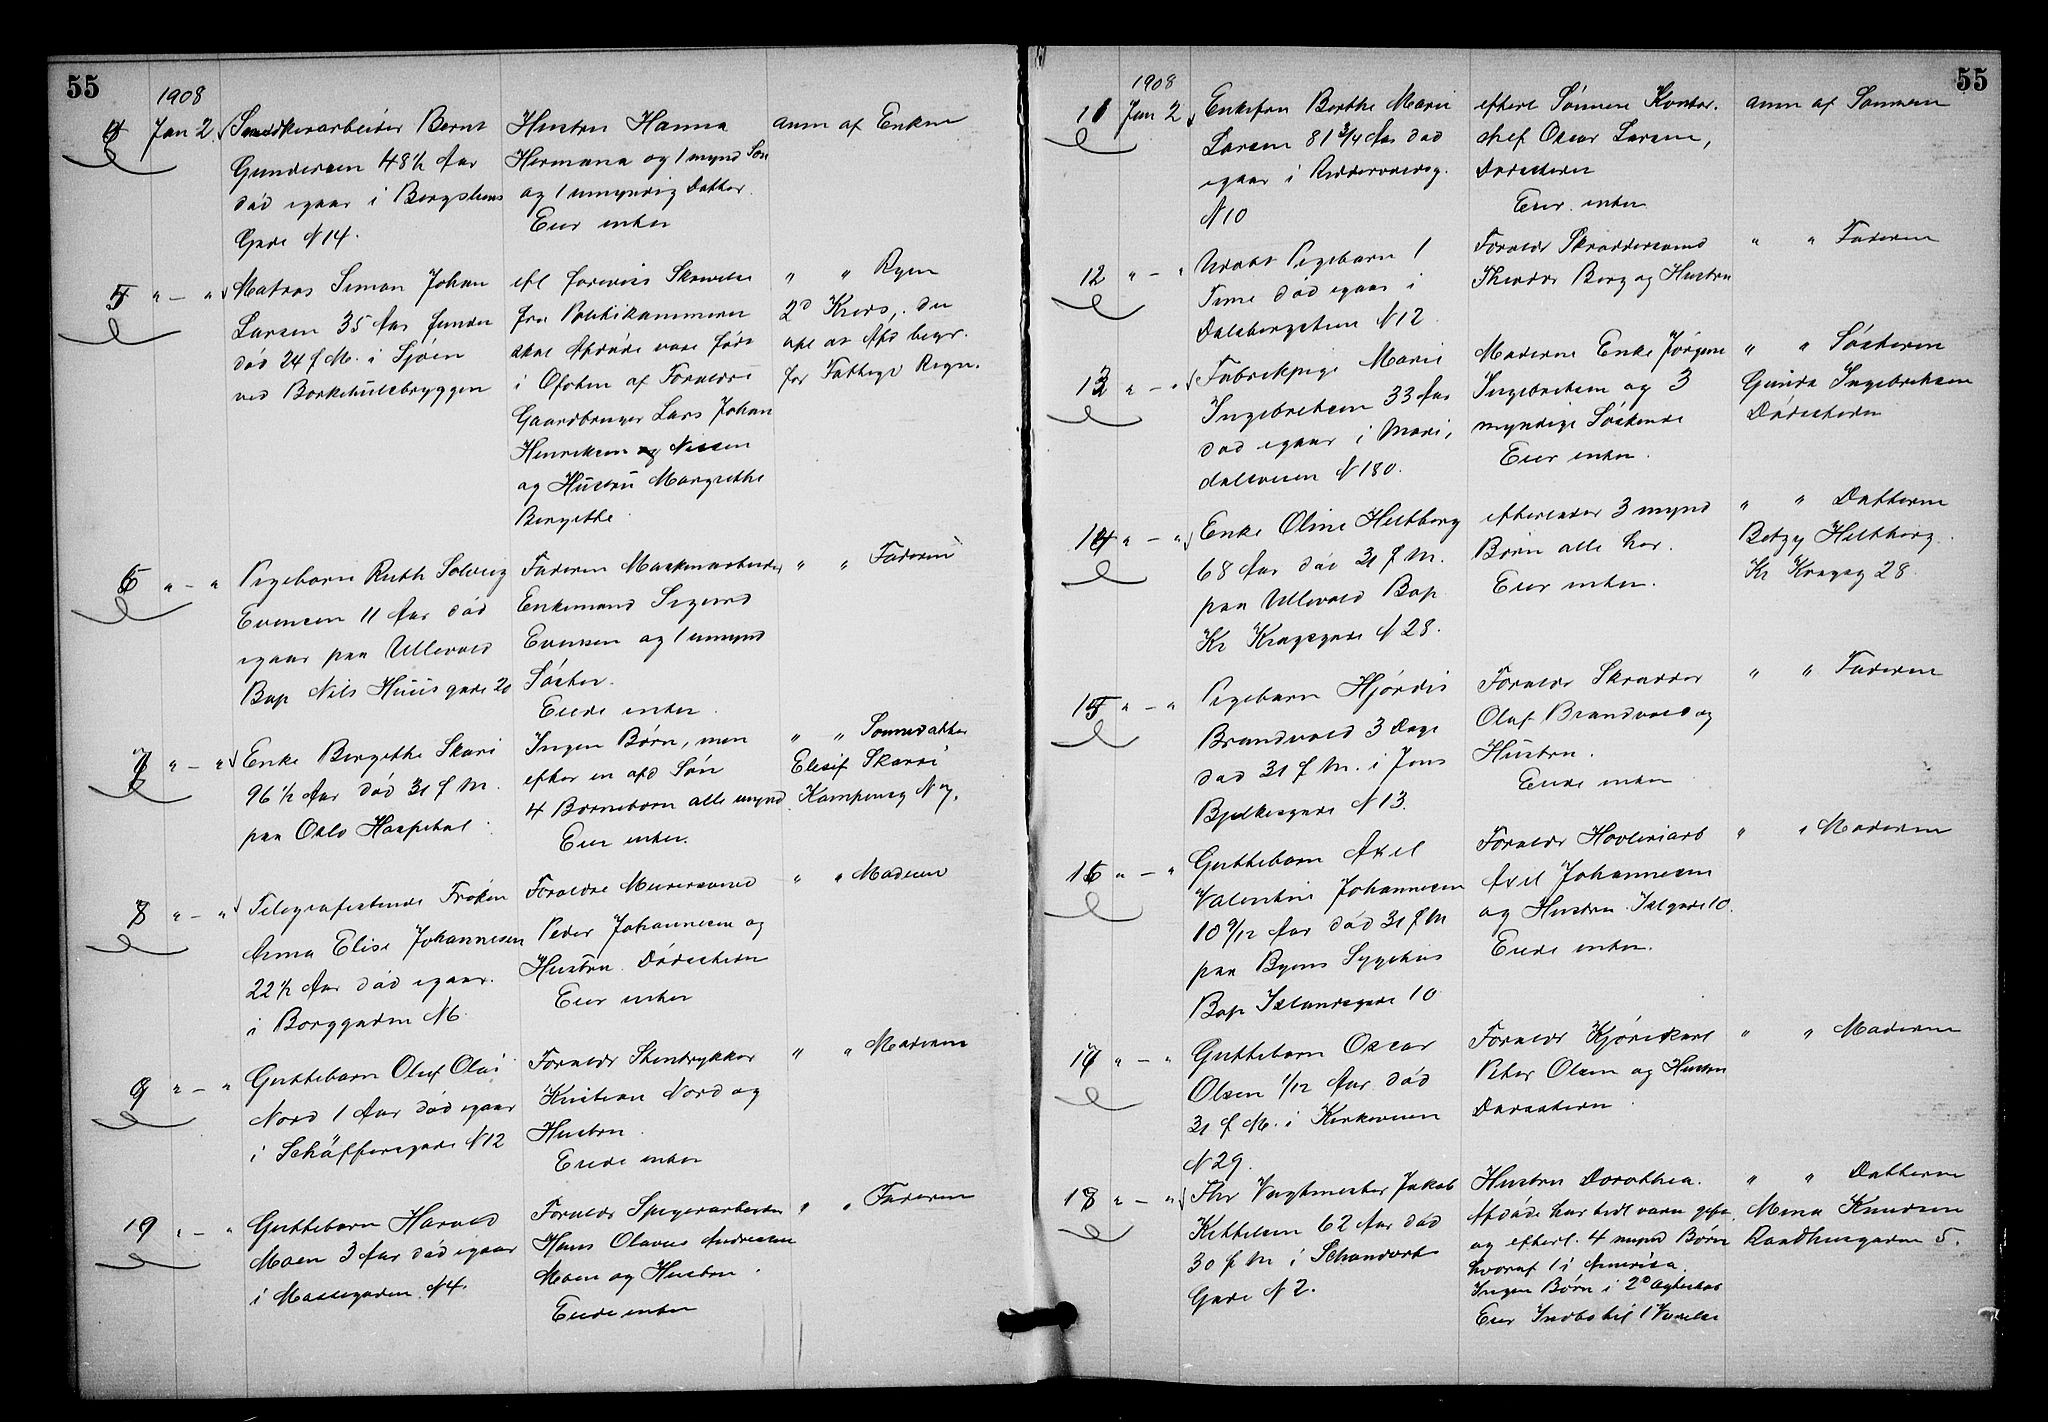 55
1908
4 Jan 2. Snedkerarbeider Bernt
Gundersen 48½ Aar
død igaar i Bergsliens
Gade N 14.
Hustru Hanna
Hermana og 1 mynd Søn
og 1 umyndig Datter.
Eier intet
anm af Enken
5 " — " Matros Simon Johan
Larsen 35 Aar funden
død 24 f M. i Sjøen
ved Børkehulsbryggen
efl forevist Skrivelse
fra Politikammeret
skal Afdøde være født
i Ofoten af Forældre
Gaardbruger Lars Johan
Henriksen Nissen
og Hustru Margrethe
Bergitte.
" " Ryen
2d Kreds, den
afd begr.
for Fattigv Regn.
6 " — " Pigebarn Ruth Solveig
Evensen 11 Aar død
igaar paa Ullevold
Bop Nils Huus gade 20
Faderen Maskinarbeider
Enkemand Sigurd
Evensen og 1 umynd
Søster.
Eiede intet
" " Faderen
7 " — " Enke Bergitte Skari
96½ Aar død 31 f M.
paa Oslo Hospital
Ingen Børn, men
efter en afd Søn
4 Børnebørn alle mynd
Eier intet.
" " Sønnedatter
Elesif Skari
Kampensg N 7.
8 " — " Telegrafistinde Frøken
Anna Elise Johannesen
22½ Aar død igaar.
i Borggaden N 6.
Forældre Murersvend
Peder Johannesen og
Hustru. Dødsattesten
Eier intet
" " Moderen
9 " — " Guttebarn Oluf Olai
Nord 1 Aar død igaar
i Schäffersgade N 12
Forældr Stentrykker
Kristian Nord og
Hustru.
Eiede intet
" " Moderen
10 " — " Guttebarn Harald
Moen 3 Aar død igaar
i Mossegaden N 4.
Forældr Spigerarbeider
Hans Olavus Andresen
Moen og Hustru.
Eiede intet
" " Faderen
55
1908
11 Jan 2 Enkefru Berthe Marie
Larsen 81 3/4 Aar død
igaar i Riddervoldsg.
N 10
efterl Sønnen Kontor.
chef Oscar Larsen,
Dødsattesten
Eier intet
anm af Sønnen
12 " — " Udøbt Pigebarn 1
Time død igaar i
Dalsbergstien N 12
Forældr Skræddersvend
Theodor Berg og Hustru
" " Faderen
13 " — " Fabrikpige Marie
Ingebretsen 33 Aar
død igaar i Mari,
dalsveien N 180.
Moderen Enke Jørgine
Ingebretsen og 3
myndige Søskende
Eier intet.
" " Søsteren
Gunda Ingebretsen
Dødsattesten
14 " — " Enke Oline Heltberg
68 Aar død 31 f M.
paa Ullevold Bop
Kr Kragsgade N 28.
efterlader 3 mynd
Børn alle her.
Eier intet.
" " Datteren
Betzy Heltberg.
Kr Kragsg 28
15 " — " Pigebarn Hjørdis
Brandvold 3 Dage
død 31 f M. i Jens
Bjelkesgade N 13.
Forældr Skrædder
Olaf Brandvold og
Hustru.
Eiede intet
" " Faderen
16 " — " Guttebarn Axel
Valentin Johannesen
10 9/12 Aar død 31 f M
paa Byens Sygehus
Bop Islandsgade 10
Forældr Høvleriarb
Axel Johannesen
og Hustru. Islgade 10.
Eiede intet.
" " Moderen
17 " — " Guttebarn Oscar
Olsen 1/12 Aar død
31 f M. i Kirkeveien
N 29.
Forældr Kjørekarl
Peter Olsen og Hustru
Dødsattesten
" " Moderen
18 " — " Fhv Vagtmester Jakob
Kittelsen 62 Aar død
30 f M i Schandorfs
Gade N 2.
Hustru Dorothea.
Afdøde har tidl været gift
og efterl. 4 mynd Børn
hvoraf 1 i Amerika.
Ingen Børn i 2d Ægteskab
Eier Indbo til 1 Værelse
" " Datteren
Mina Knudsen
Raadhusgaden 5.